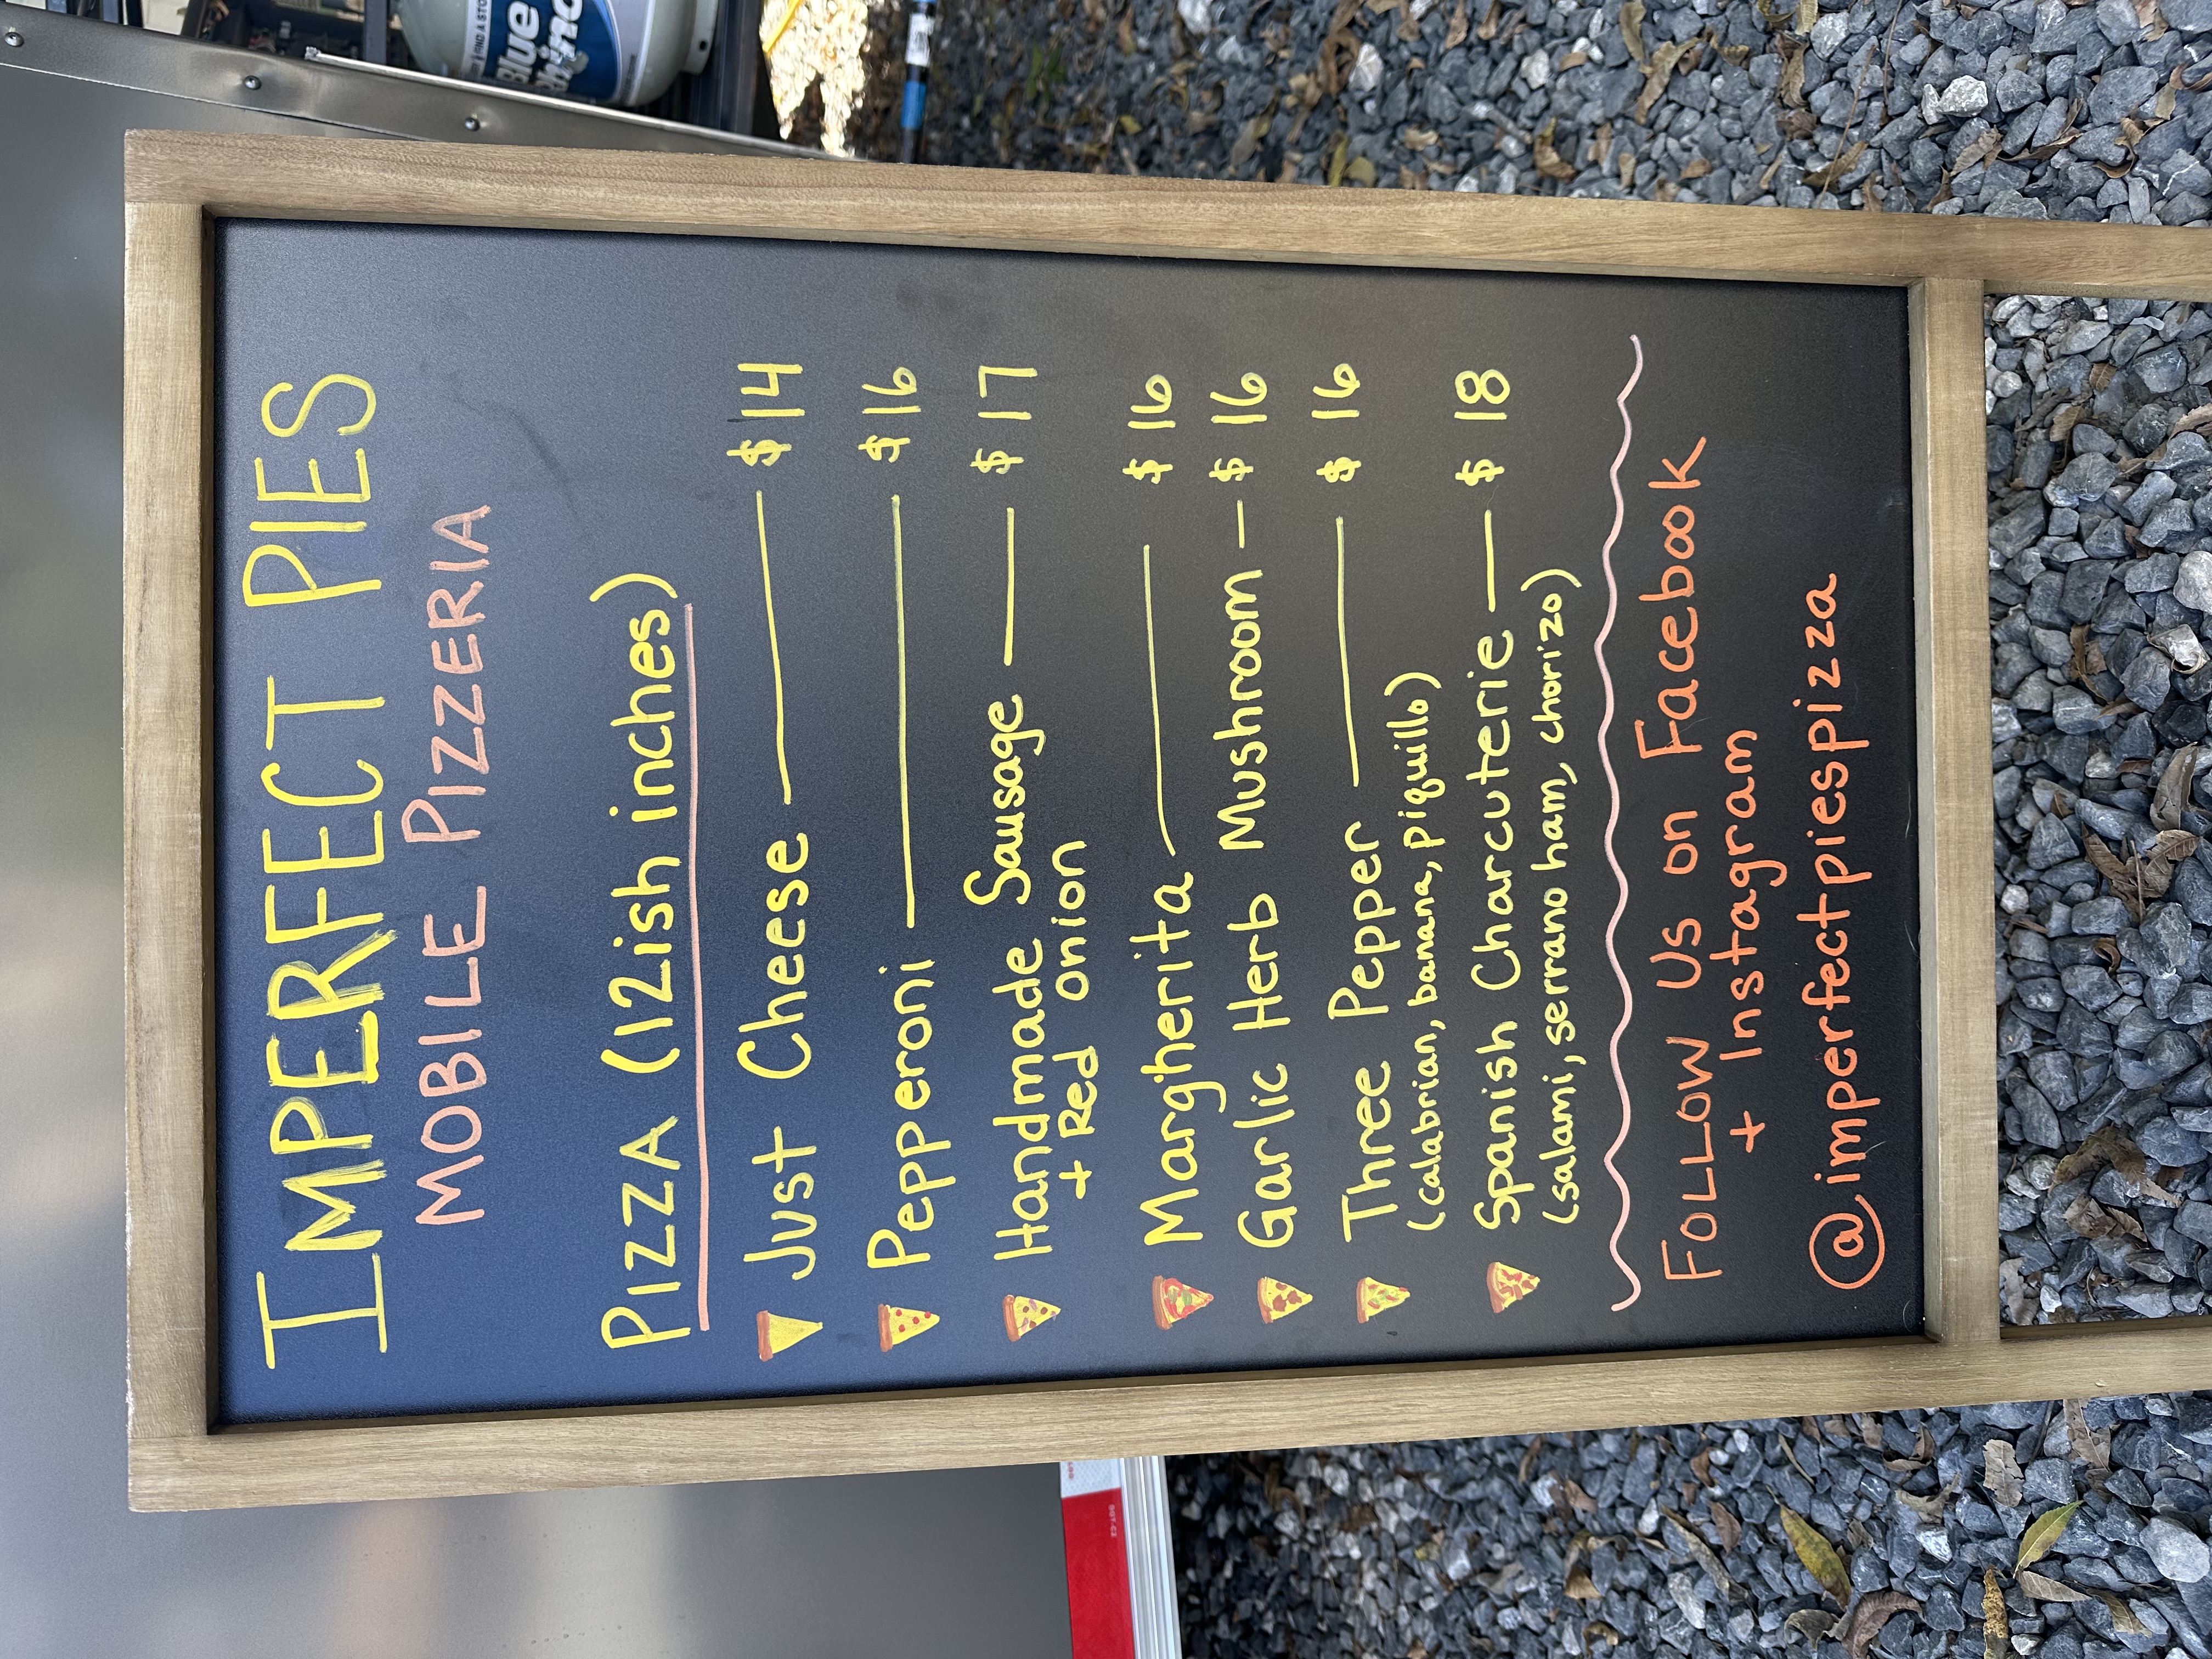 IMPERFECT PIES
MOBILE PIZZERIA
PIZZA (12ish inches)
Just Cheese — $14
Pepperoni — $16
Handmade Sausage — $17
+ Red Onion
Margherita — $16
Garlic Herb Mushroom — $16
Three Pepper — $16
(calabrian, banana, piquillo)
Spanish Charcuterie — $18
(salami, serrano ham, chorizo)
Follow Us on Facebook
+ Instagram
@imperfectpiespizza
Blue